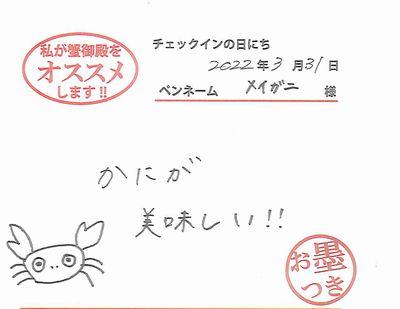 私が蟹御殿を
オススメ
します!!
チェックインの日にち
2022年3月31日
ペンネーム メイガニ 様
かにが
美味しい!!
お墨
つき